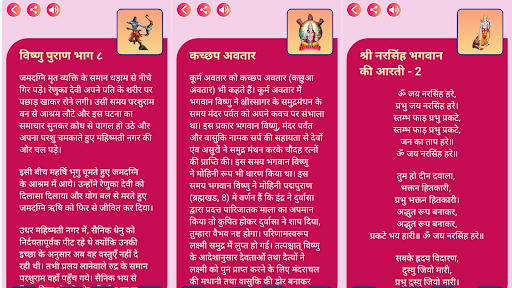 विष्णु पुराण भाग ८
जमदग्नि मृत व्यक्ति के समान धड़ाम से नीचे
गिर पड़े। रेणुका देवी अपने पति के शरीर पर
पछाड़ खाकर रोने लगी। उसी समय परशुराम
वन से आश्रम लौटे और इस घटना का
समाचार सुनकर क्रोध से पागल हो उठे और
अपना परशु चमकाते हुए महिष्मती नगर की
ओर चल पड़े।
इसी बीच महर्षि भृगु घूमते हुए जमदग्नि
के आश्रम में आये। उन्होंने रेणुका देवी को
दिलासा दिलाया और योग बल से मरते हुए
जमदग्नि ऋषि को फिर से जीवित कर दिया।
उधर महिष्मती नगर में, सैनिक धेनु को
निर्दयतापूर्वक पीट रहे थे क्योंकि उनकी
इच्छा के अनुसार अब वह वस्तुएँ नहीं दे
रही थी। तभी प्रलय लानेवाले रुद्र के समान
परशुराम वहाँ पहुँच गये। सैनिक भय से
कच्छप अवतार
कूर्म अवतार को कच्छप अवतार (कछुआ
अवतार) भी कहते हैं। कूर्म अवतार में
भगवान विष्णु ने क्षीरसागर के समुद्रमंथन के
समय मंदर पर्वत को अपने कवच पर संभाला
था। इस प्रकार भगवान विष्णु, मंदर पर्वत
और वासुकि नामक सर्प की सहायता से देवों
एंव असुरों ने समुद्र मंथन करके चौदह रत्नों
की प्राप्ति की। इस समय भगवान विष्णु
ने मोहिनी रूप भी धारण किया था। इस
अवतार में भगवान विष्णु ने मोहिनी पद्मपुराण
(ब्रह्मखड, 8) में वर्णन हैं कि इंद्र ने दुर्वासा
द्वारा प्रदत्त पारिजातक माला का अपमान
किया तो कुपित होकर दुर्वासा ने शाप दिया,
तुम्हारा वैभव नष्ट होगा। परिणामस्वरूप
लक्ष्मी समुद्र में लुप्त हो गई। तत्पश्चात् विष्णु
के आदेशानुसार देवताओं तथा दैत्यों ने
लक्ष्मी को पुन प्राप्त करने के लिए मंदराचल
की मथानी तथा वासुकि की डोर बनाकर
श्री नरसिंह भगवान
की आरती - 2
ॐ जय नरसिंह हरे,
प्रभु जय नरसिंह हरे।
स्तम्भ फाड़ प्रभु प्रकटे,
स्तम्भ फाड़ प्रभु प्रकटे,
जन का ताप हरे॥
ॐ जय नरसिंह हरे॥
तुम हो दीन दयाला,
भक्तन हितकारी,
प्रभु भक्तन हितकारी।
अद्भुत रूप बनाकर,
अद्भुत रूप बनाकर,
प्रकटे भय हारी॥ ॐ जय नरसिंह हरे॥
सबके ह्रदय विदारण,
दुस्यु जियो मारी,
प्रभु दुस्यु जियो मारी।